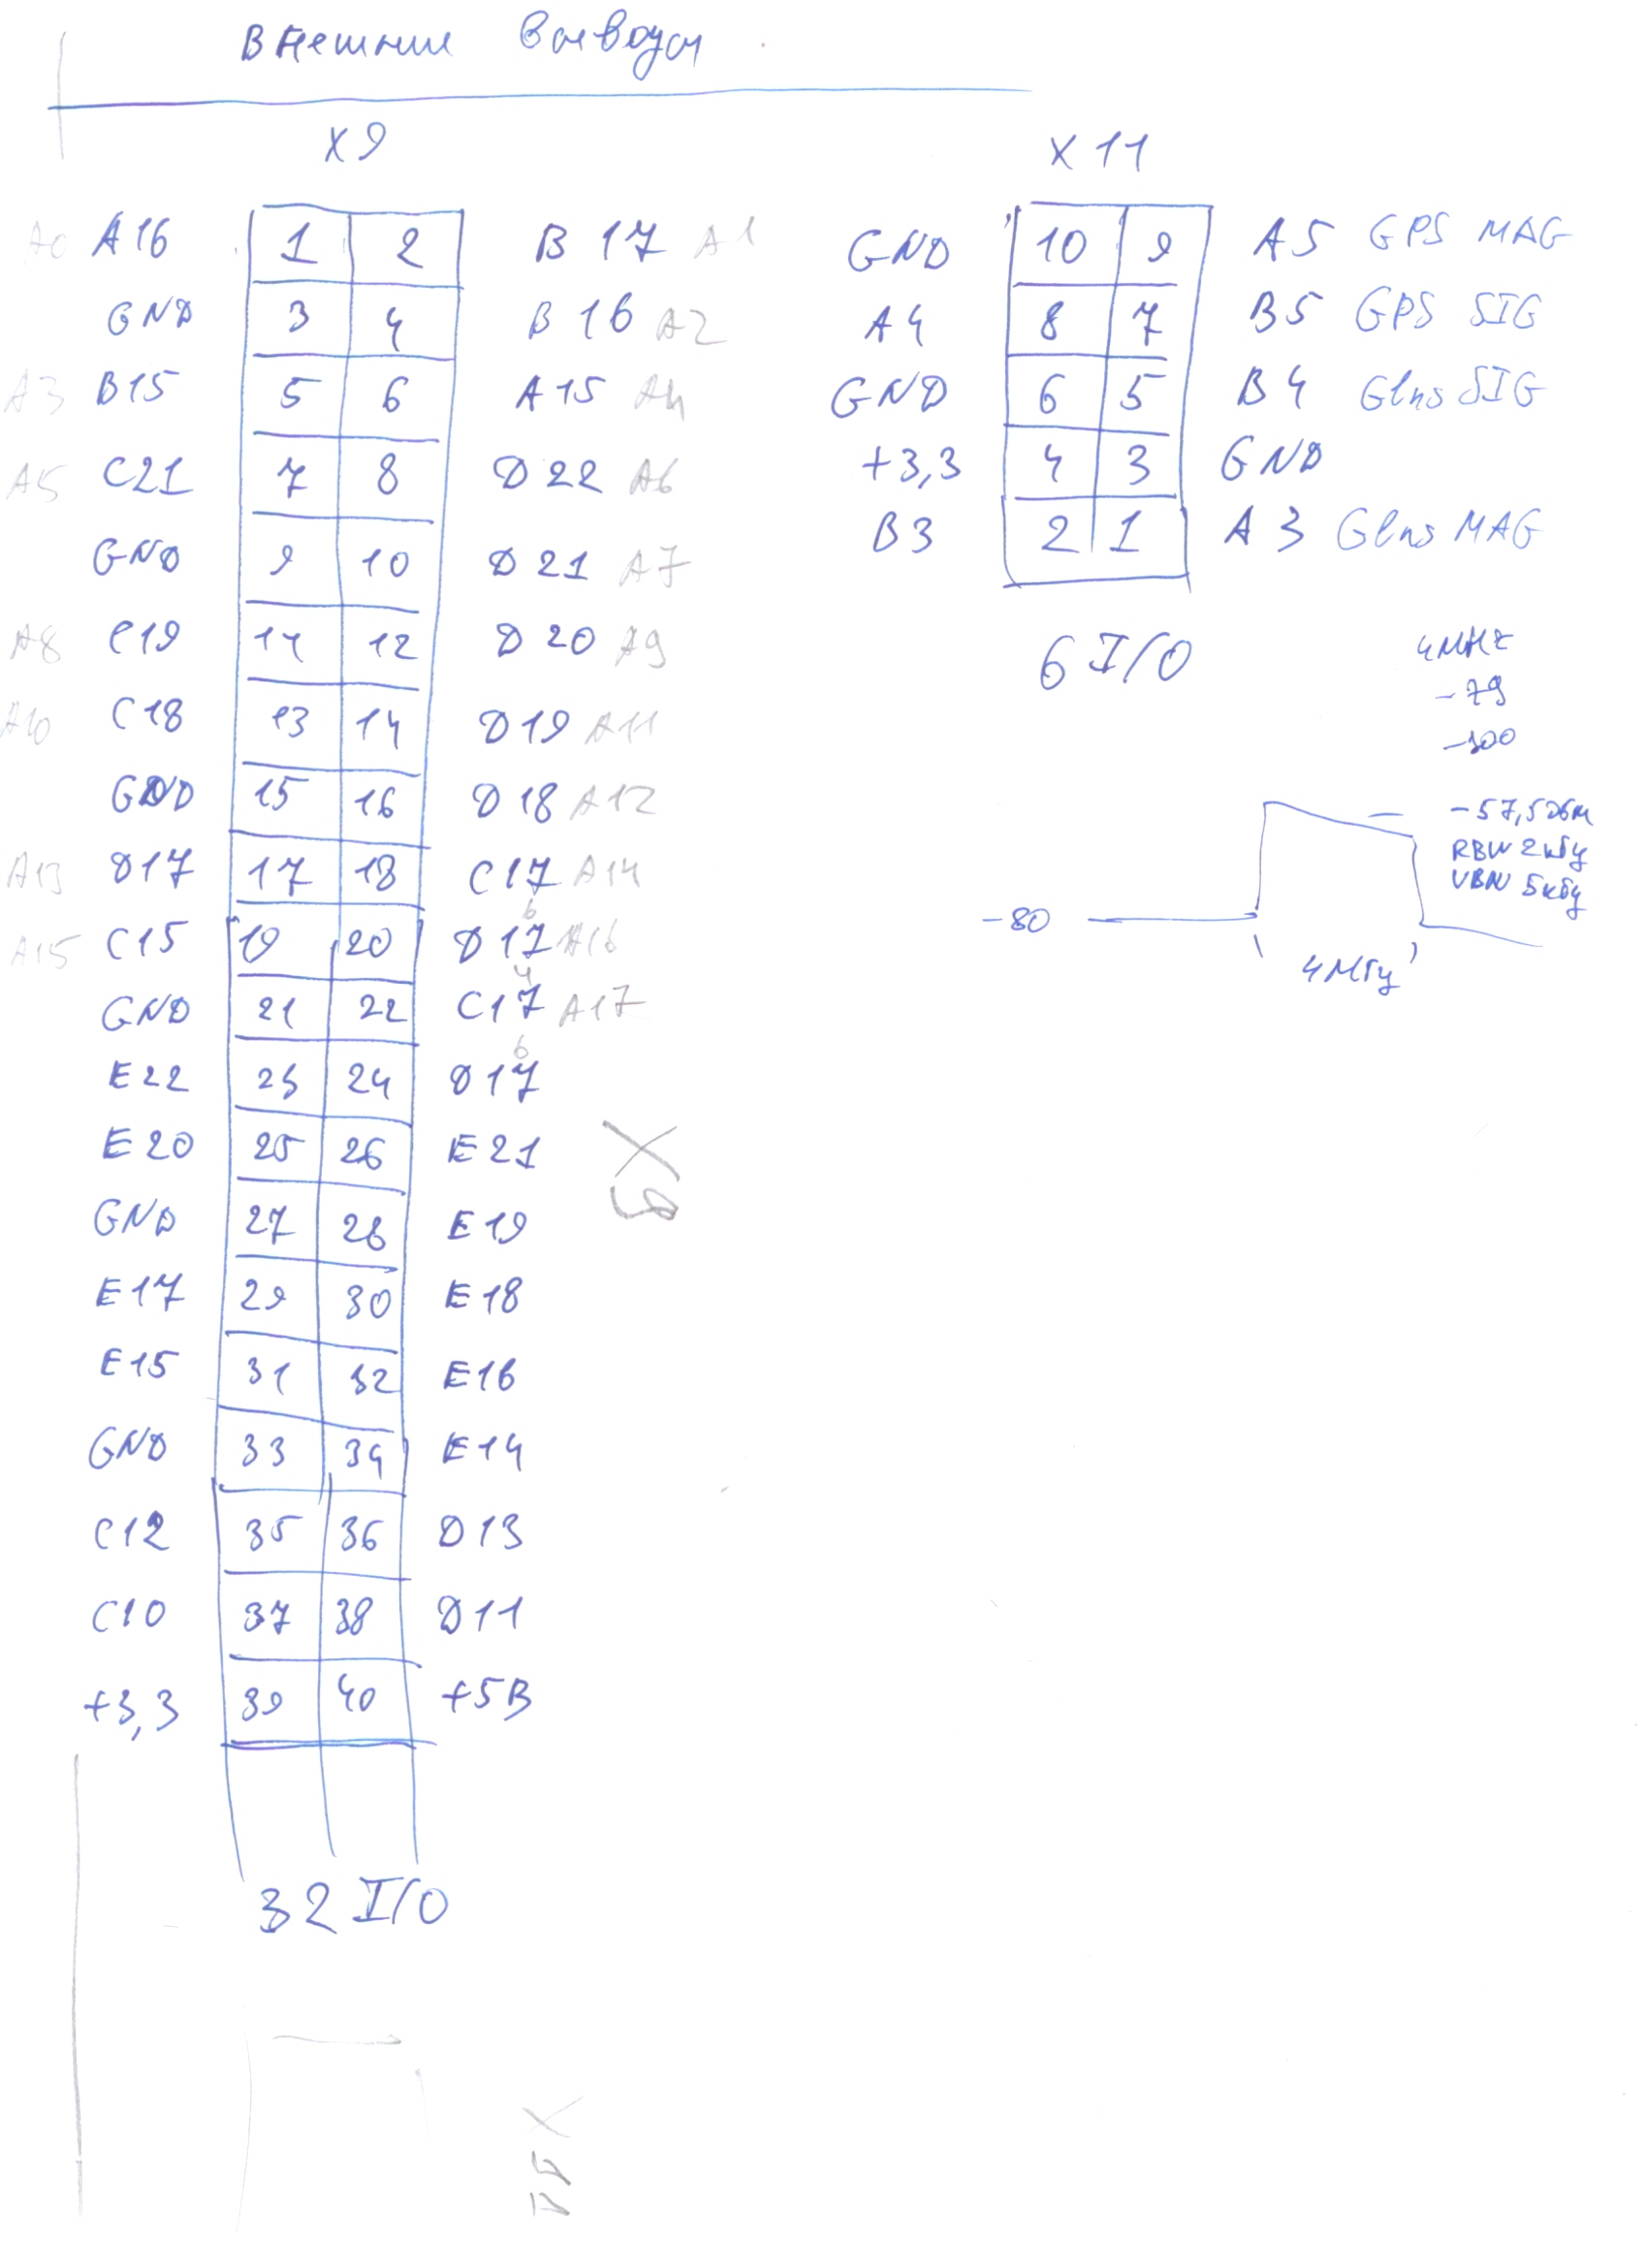 Внешние выводы
X9
A0 A16 1 2 B17 A1
GND 3 4 B16 A2
A3 B15 5 6 A15 A4
A5 C21 7 8 D22 A6
GND 9 10 D21 A7
A8 C19 11 12 D20 A9
A10 C18 13 14 D19 A11
GND 15 16 D18 A12
A13 D17 17 18 C17 A14
6
A15 C15 19 20 D17 A16
4
GND 21 22 C17 A17
6
E22 23 24 D17
E20 25 26 E21
GND 27 28 E19
E17 29 30 E18
E15 31 32 E16
GND 33 34 E14
C12 35 36 D13
C10 37 38 D11
+3,3 39 40 +5В
32 I/O
X9
X11
GND 10 9 A5 GPS MAG
A4 8 7 B5 GPS SIG
GND 6 5 B4 Glns SIG
+3,3 4 3 GND
B3 2 1 A3 Glns MAG
6 I/O
4MHz
-79
-100
-57,5 дбм
RBW 2 кГц
VBW 5 кГц
-80
4 МГц